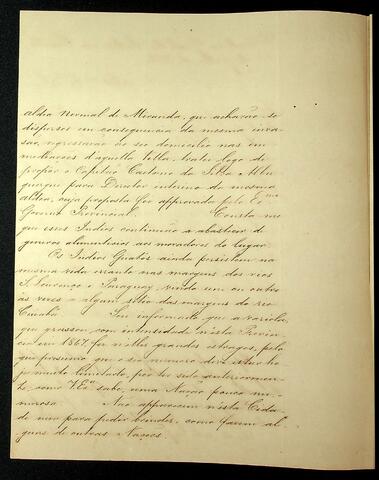 aldêa Normal de Miranda, que achavão-se
dispersos em consequencia da mesma inva-
são, regressarão ao seo domicilio nas im-
mediacoes d'aquella Villa, tratei logo de
propôr o Capitão Caetano da Silva Albu-
querque para Director interino da mesma
aldêa, cuja proposta foi approvada pelo Ex.mo
Governo Provincial. Consta-me
que esses Indios continuão a abastecer de
generos alimenticios aos moradores do lugar.
Os Indios Guatós ainda persistem na
mesma vida errante nas margens dos rios
S. Lourenço e Paraguay, vindo um ou outro
ás vezes a algum sitio das margens do rio
Cuiabá. Sou informado que a variola,
que grassou com intensidade n'esta Provin-
cia em 1867 fez n'elles grandes estragos, pelo
que presumo que o seo numero deve estar ho-
je muito limitado, por ter sido anteriormen-
te, como V.Ex.a sabe, uma Nação pouco nu-
merosa. Não apparecem n'esta Cida-
de nem para pedir brindes, como fazem al-
guns de outras Nações.